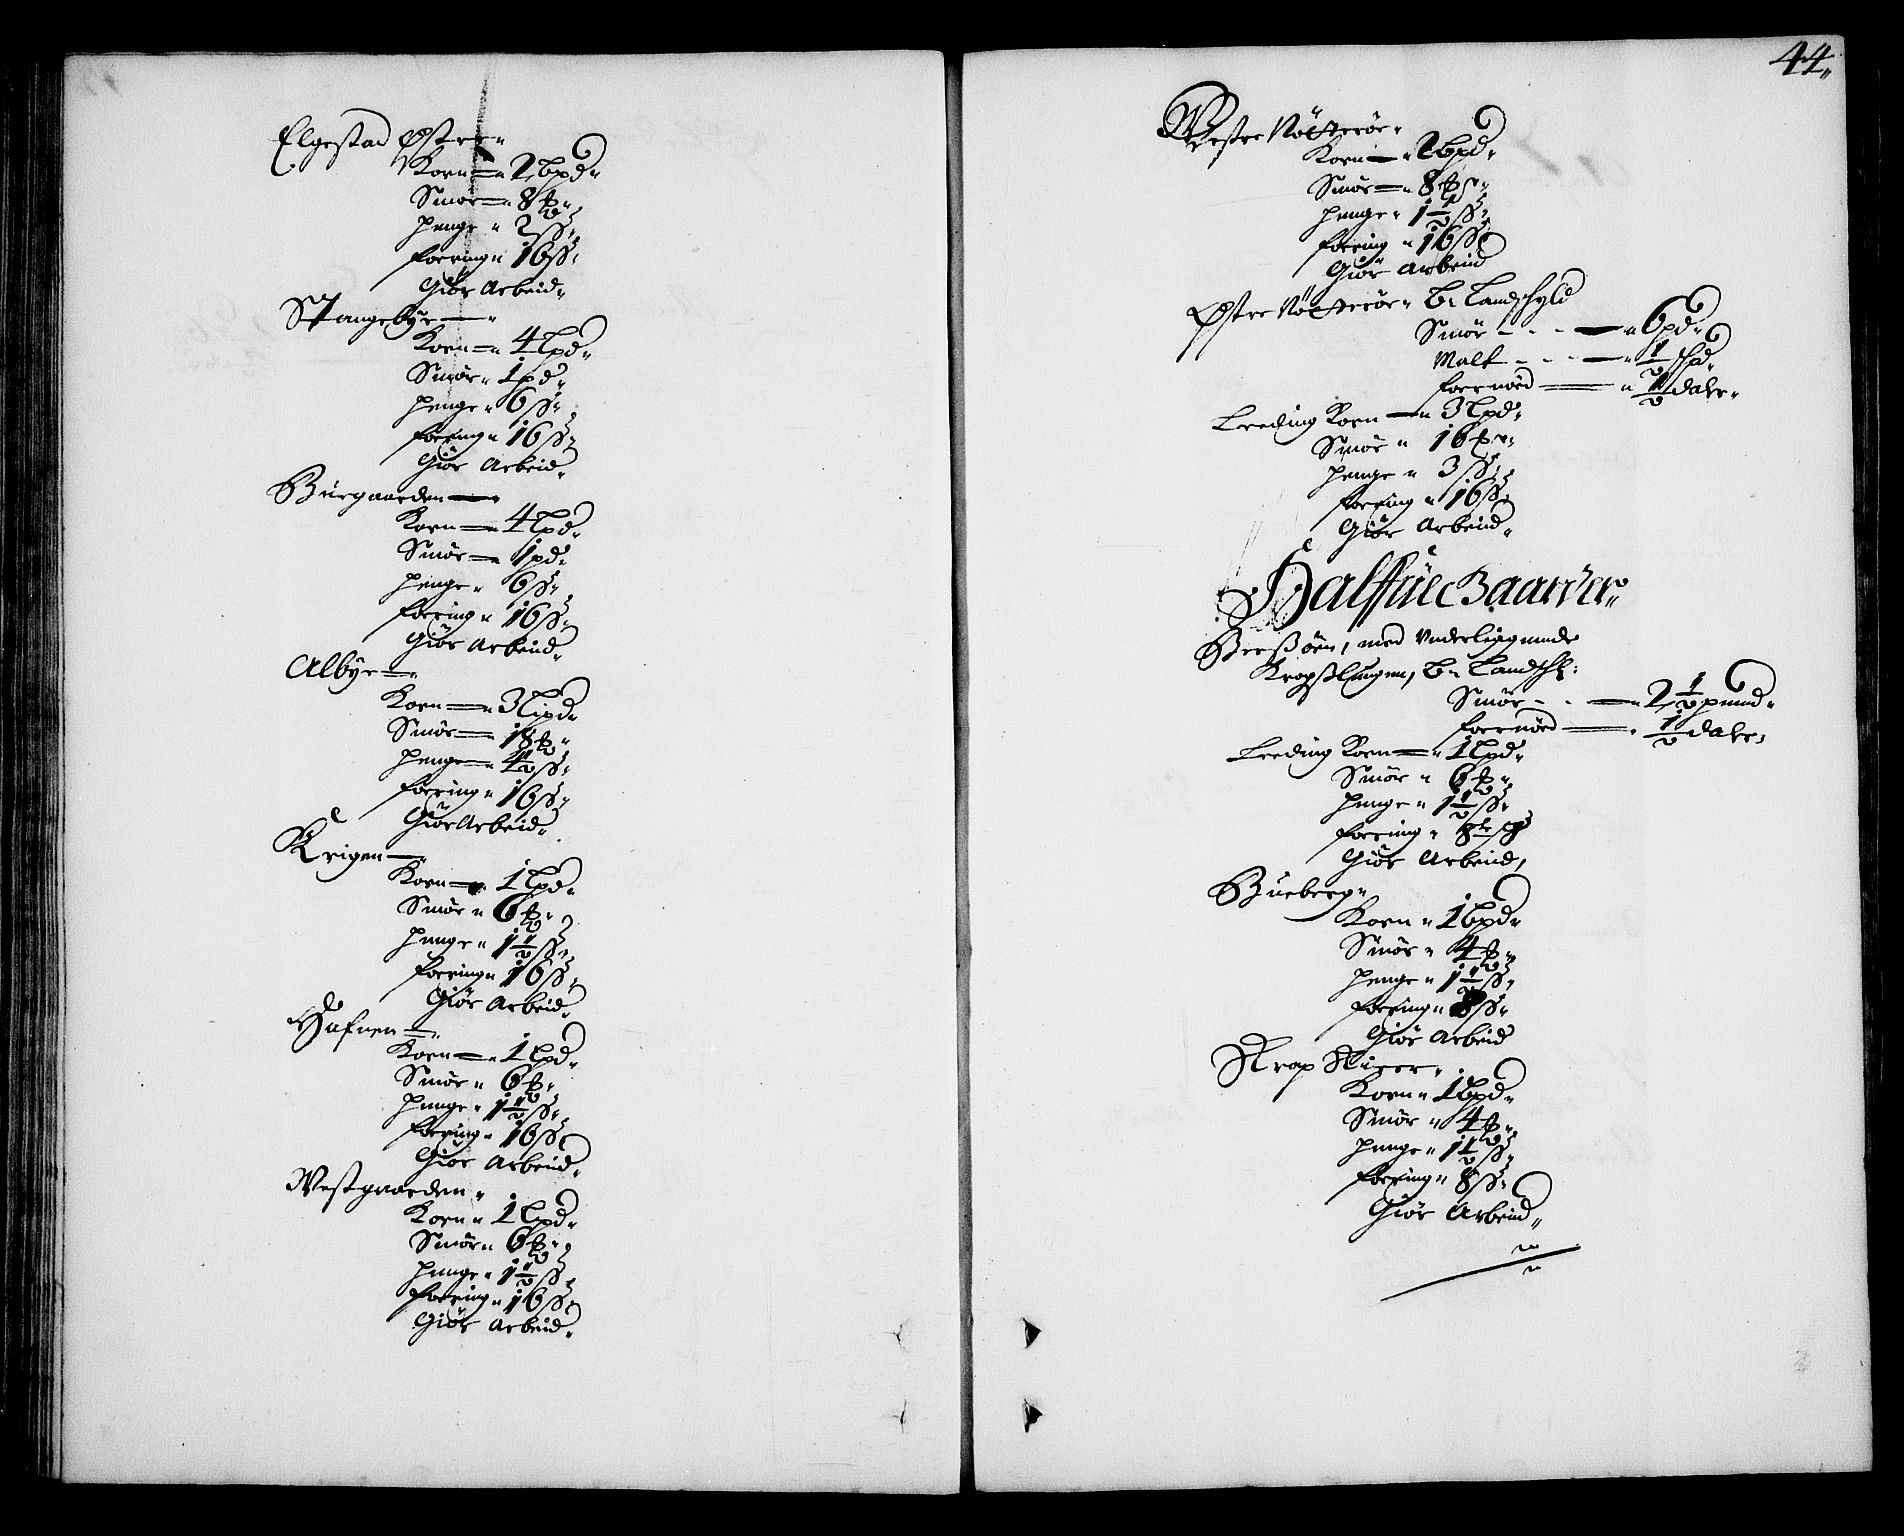 Elgestad Østre
Korn 2 Lpd
Smør 8 ℔
Penge 2 ß
Foering 16 ß
Giör Arbeid
Stangebye
Korn 4 Lpd
Smör 1 pd
Penge 6 ß
Foering 16 ß
Giör Arbeid
Burgaarden
Korn 4 Lpd
Smör 1 pd
Penge 6 ß
Foering 16 ß
Giör Arbeid
Albye
Korn 3 Lipd
Smör 18 ℔
Penge 4 1/2 ß
Foering 16 ß
Giör Arbeid
Krigen
Korn 1 Lpd
Smör 6 ℔
Penge 1 1/2 ß
Foering 16 ß
Giör Arbeid
Hafnen
Korn 1 Lpd
Smör 6 ℔
Penge 1 1/2 ß
Foering 16 ß
Giör Arbeid
Westgaarden
Korn 1 Lpd
Smör 6 ℔
Penge 1 1/2 ß
Foering 16 ß
Giör Arbeid
44
Westre Nötteröe
Korn 2 Lpd
Smör 8 ℔
Penge 1 1/2 ß
Foering 16 ß
Giör Arbeid
Østre Nötteröe B: Landschyld
Smör 6 pd
Malt 1/2 Shpd
Foernöed 1/2 daler
Leeding Korn 3 Lpd
Smör 16 ℔
Penge 3 ß
Foering 16 ß
Giör Arbeid
Halffue Gaarder
Breßöen, med Underliggende
B: Landsch:
Smör 2 1/2 pund
Foernöed 1/2 daler
Leeding Korn 1 Lpd
Smör 6 ℔
Penge 1 1/2 ß
Foering 8 ß
Giör Arbeid
Bueberg
Korn 1 Lpd
Smör 4 ℔
Penge 1 1/2 ß
Foering 8 ß
Giör Arbeid
Korn 1 Lpd
Smör 4 ℔
Penge 1 1/2 ß
Foering 8 ß
Giör Arbeid